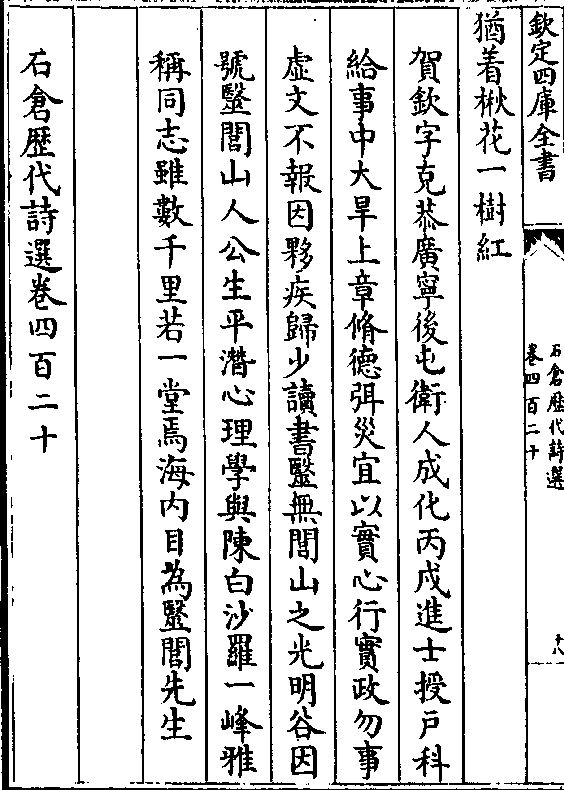 欽定四庫全書
石倉歷代詩選
卷四百二十
十八
猶着楸花一樹紅
賀欽字克恭廣寧後屯衛人成化丙戌進士授戶科
給事中大旱上章脩德弭災宜以實心行實政勿事
虚文不報因夥疾歸少讀書毉無閭山之光明谷因
號毉閭山人公生平潛心理學與陳白沙羅一峰雅
稱同志雖數千里若一堂焉海内目為毉閭先生
石倉歷代詩選卷四百二十